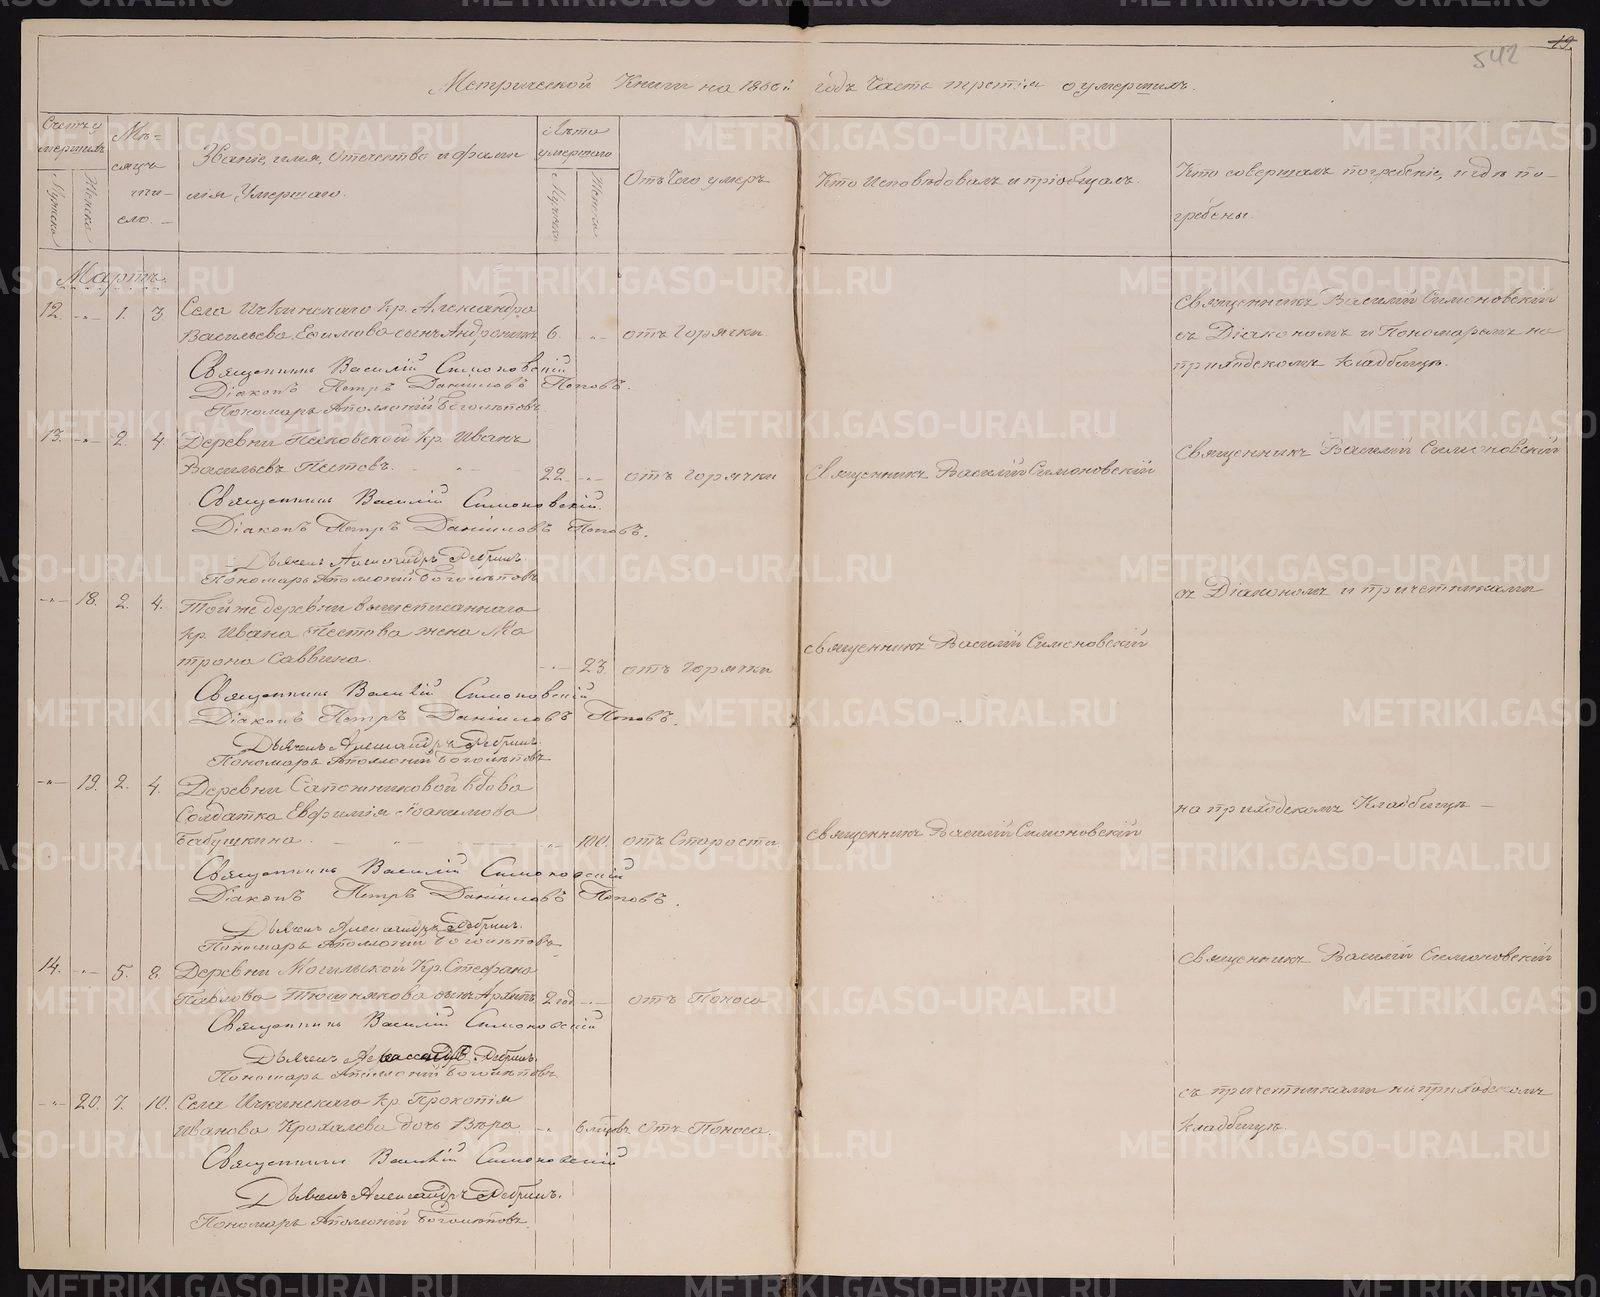 542
19.
Метрической Книги на 1860й годъ Часть третія о умершихъ.
Счетъ у
мершихъ
Мужска
Женска
Мѣ-
сяцъ
чи-
сло.
Званіе, имя, отечество и фами
лія Умершаго.
Лѣта
умершаго
Мужска
Женска
Отъ Чего умеръ
Кто Исповѣдовалъ и пріобщалъ.
Кто совершалъ погребеніе, и гдѣ по-
гребены.
Мартъ.
12. -"- 1. 3 Села Ичкинскаго кр. Александра
Васильева Ефимова сынъ Андроникъ 6. -"- отъ Горячки
Священникъ Василій Симоновскій
Діаконъ Петръ Даніиловъ Поповъ.
Пономарь Аполлоній Боголѣповъ
Священникъ Василій Симоновскій
съ Діакономъ и Пономаремъ на
приходскомъ кладбищѣ.
13. -"- 2. 4. Деревни кр. Иванъ
Васильевъ Пестовъ. 22. -"- отъ Горячки Священникъ Василій Симоновскій
Священникъ Василій Симоновскій.
Діаконъ Петръ Даніиловъ Поповъ.
Дьячекъ Александръ
Пономарь Аполлоній Боголѣповъ
Священникъ Василій Симоновскій
-"- 18. 2. 4. Тойже деревни вышеписаннаго
кр. Ивана Пестова жена Ма
трона Саввина. -"- 23. отъ Горячки Священникъ Василій Симоновскій
Священникъ Василій Симоновскій
Діаконъ Петръ Даніиловъ Поповъ.
Дьячекъ Александръ
Пономарь Аполлоній Боголѣповъ
съ Діакономъ и причетниками
-"- 19. 2. 4. Деревни Сапожниковой вдова
Солдатка Евфимія Іоакимова
Бабушкина. -"- 100. отъ Старости Священникъ Василій Симоновскій
Священникъ Василій Симоновскій
Діаконъ Петръ Даніиловъ Поповъ.
Дьячекъ Александръ
Пономарь Аполлоній Боголѣповъ
на приходскомъ Кладбищѣ —
14. -"- 5. 8. Деревни Могильской Кр. Стефана
Павлова Тюшнякова сынъ Архипъ 2 год -"- отъ Поноса
Священникъ Василій Симоновскій
Дьячекъ Александръ
Пономарь Аполлоній Боголѣповъ
Священникъ Василій Симоновскій
-"- 20. 7. 10. Села Ичкинскаго кр. Прокопія
Иванова Крохалева дочь Вѣра -"- 6 мцовъ отъ Поноса.
Священникъ Василій Симоновскій
Дьячекъ Александръ
Пономарь Аполлоній Боголѣповъ.
съ причетниками на приходскомъ
кладбищѣ.
METRIKI.GASO-URAL.RU